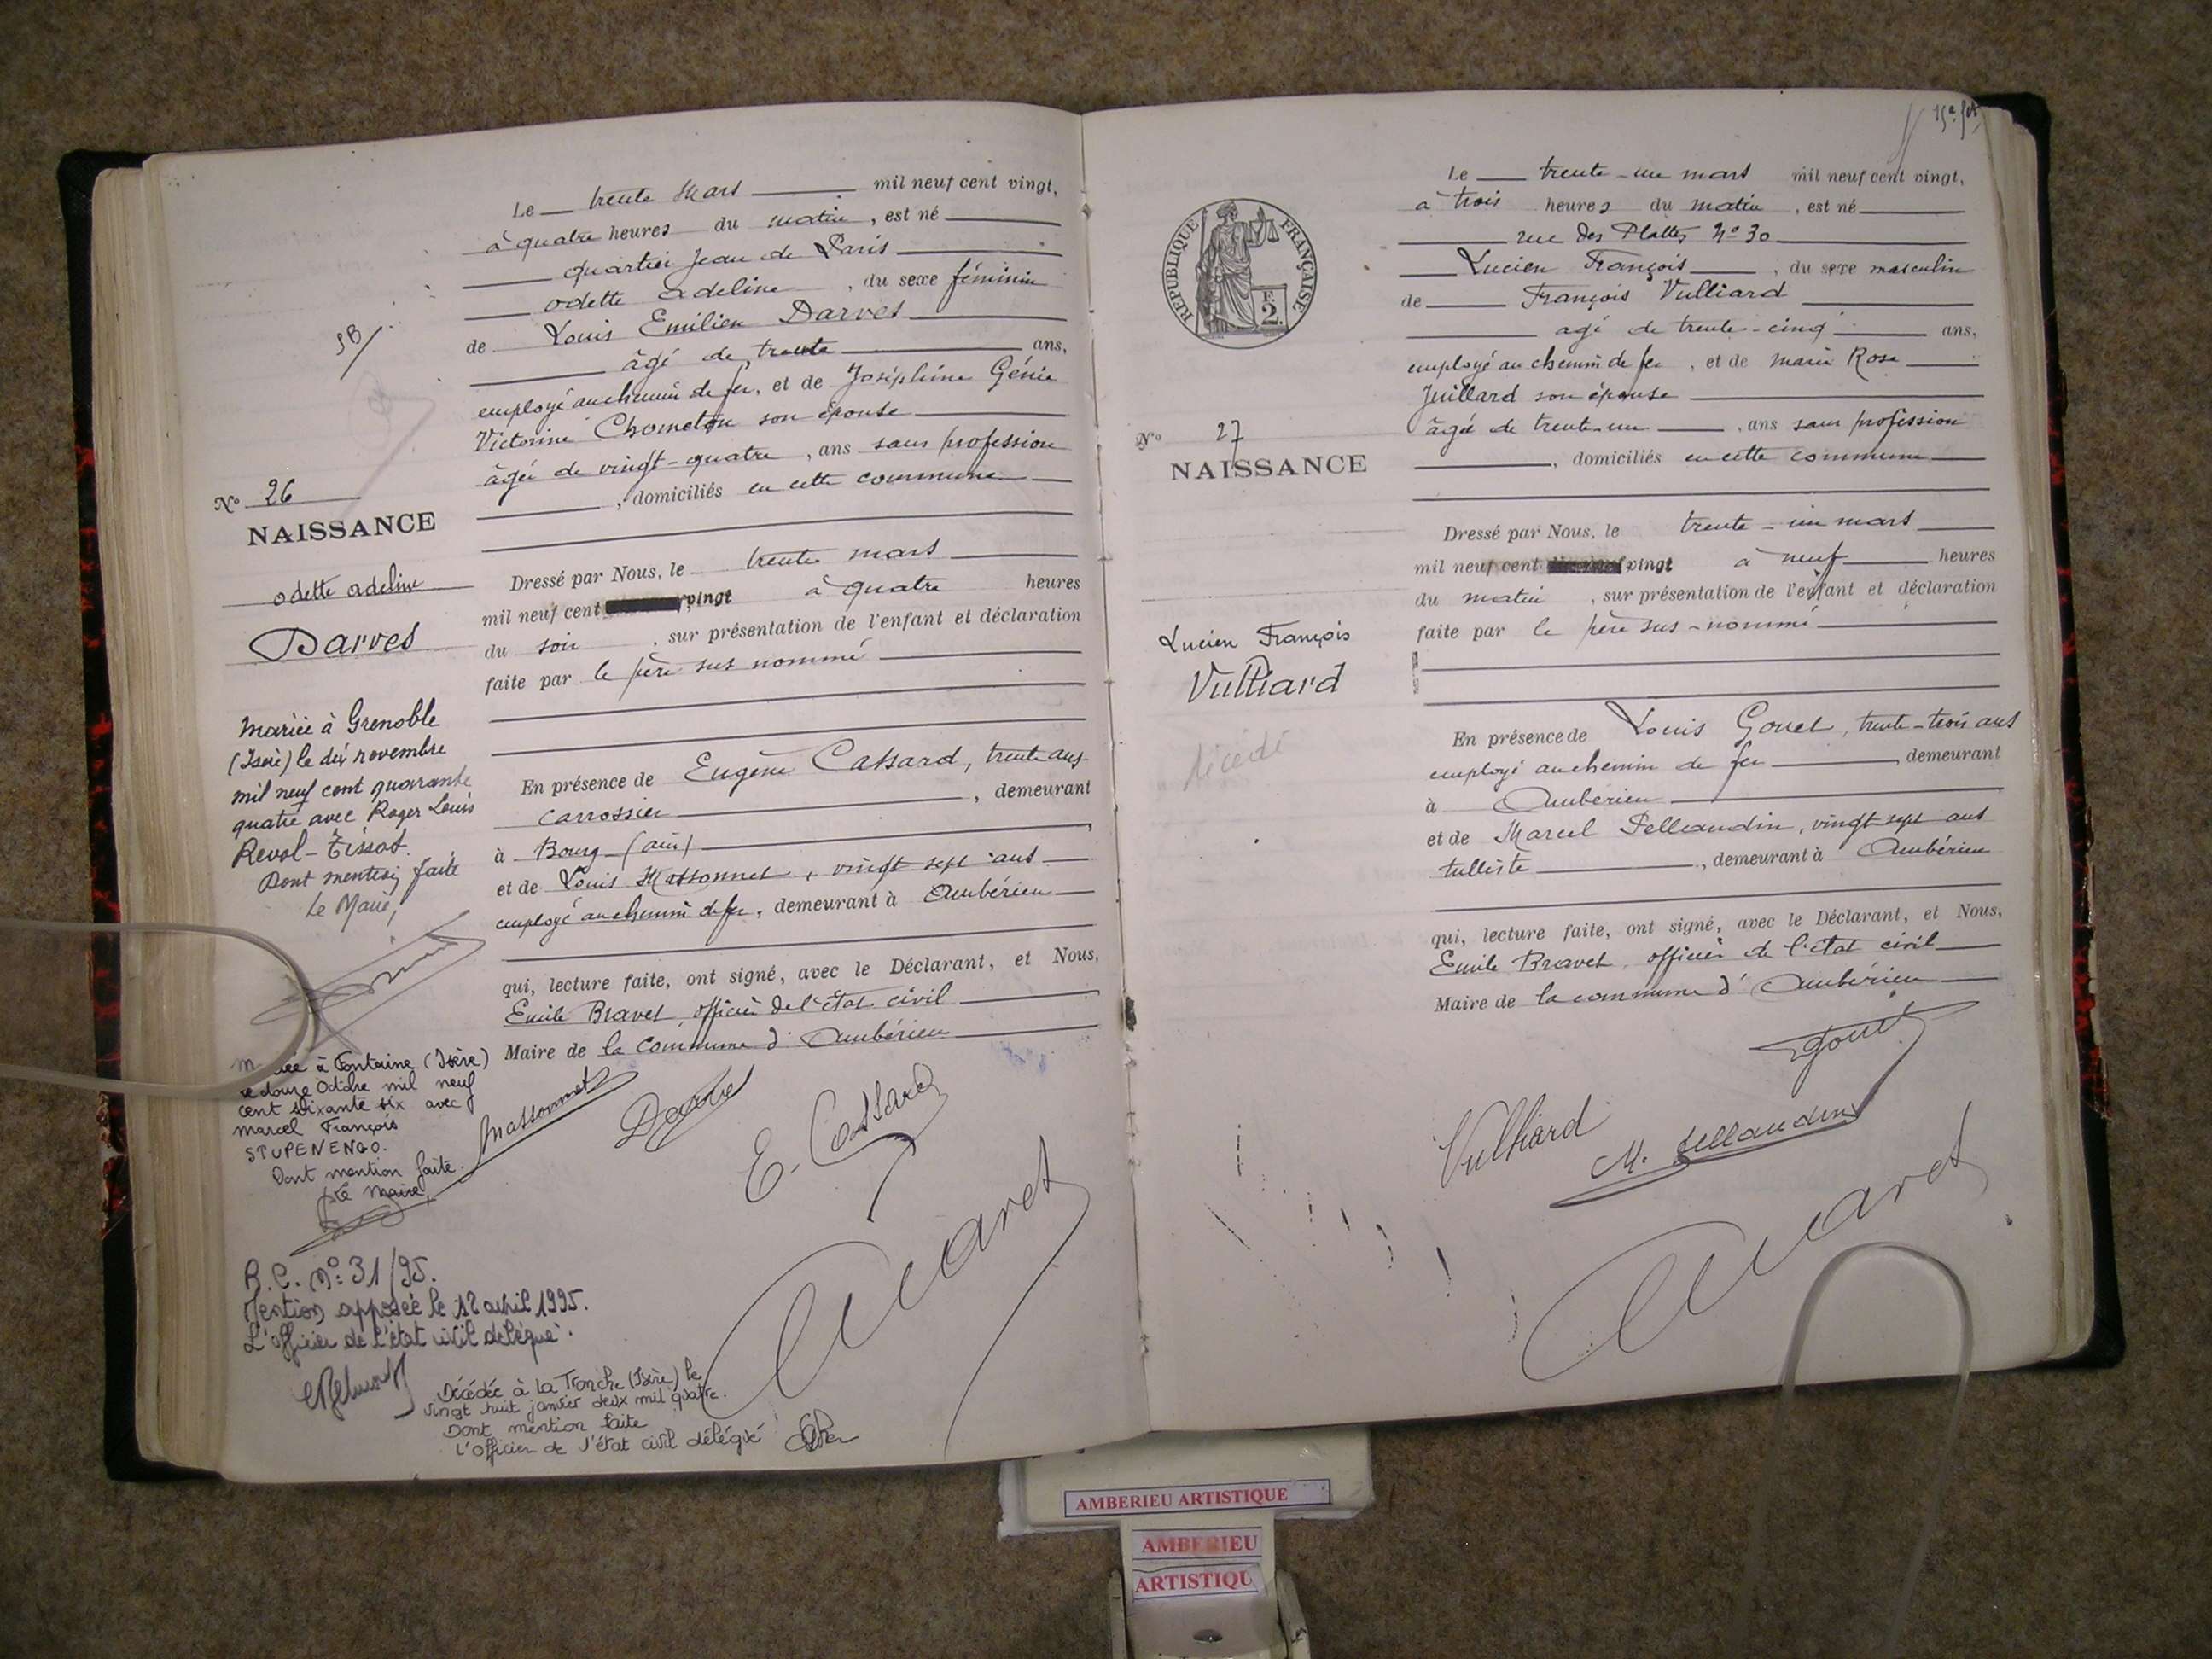 Le trente Mars mil neuf cent vingt,
à quatre heures du matin, est né
quartier Jean de Paris
odette adeline, du sexe féminin
de Louis Emilien Darves
âgé de trente ans,
employé au chemin de fer, et de Joséphine Génie
Victorine Chometon son épouse
âgée de vingt-quatre, ans sans profession
, domiciliés en cette commune
SB/
No 26
NAISSANCE
odette adeline
Darves
Dressé par Nous, le trente mars
mil neuf cent vingt à quatre heures
du soir, sur présentation de l'enfant et déclaration
faite par le père sus nommé
Mariée à Grenoble
(Isère) le dix novembre
mil neuf cent quarante
quatre avec Roger Louis
Revol-Tissot.
Dont mention faite
Le Maire,
En présence de Eugène Cassard, trente ans
carrossier, demeurant
à Bourg (ain)
et de Louis Massonnet, vingt sept ans
employé au chemin de fer, demeurant à Ambérieu
qui, lecture faite, ont signé, avec le Déclarant, et Nous,
Emile Bravet, officier de l'état civil
Maire de la commune d'Ambérieu
à Fontaine (Isère)
le douze Octobre mil neuf
cent soixante six avec
Marcel François
STUPENENGO.
Dont mention faite.
Le Maire,
Massonnet
E. Cassard
R.C. No: 31/95.
Mention apposée le 12 avril 1995.
L'officier de l'état civil délégué.
Décédée à La Tronche (Isère) le
vingt huit janvier deux mil quatre.
Dont mention faite
L'officier de l'état civil délégué
Le trente-un mars mil neuf cent vingt,
à trois heures du matin, est né
rue des Plattes No 30
Lucien François, du sexe masculin
de François Vulliard
agé de trente-cinq ans,
employé au chemin de fer, et de Marie Rose
Juillard son épouse
âgée de trente-un, ans sans profession
, domiciliés en cette commune
REPUBLIQUE FRANÇAISE
2
No 27
NAISSANCE
Lucien François
Vulliard
décédé
Dressé par Nous, le trente-un mars
mil neuf cent vingt à neuf heures
du matin, sur présentation de l'enfant et déclaration
faite par le père sus-nommé
En présence de Louis Gonet, trente-trois ans
employé au chemin de fer, demeurant
à Ambérieu
et de Marcel Pellaudin, vingt sept ans
tulliste, demeurant à Ambérieu
qui, lecture faite, ont signé, avec le Déclarant, et Nous,
Emile Bravet, officier de l'état civil
Maire de la commune d'Ambérieu
Vulliard
AMBERIEU ARTISTIQUE
AMBERIEU
ARTISTIQU